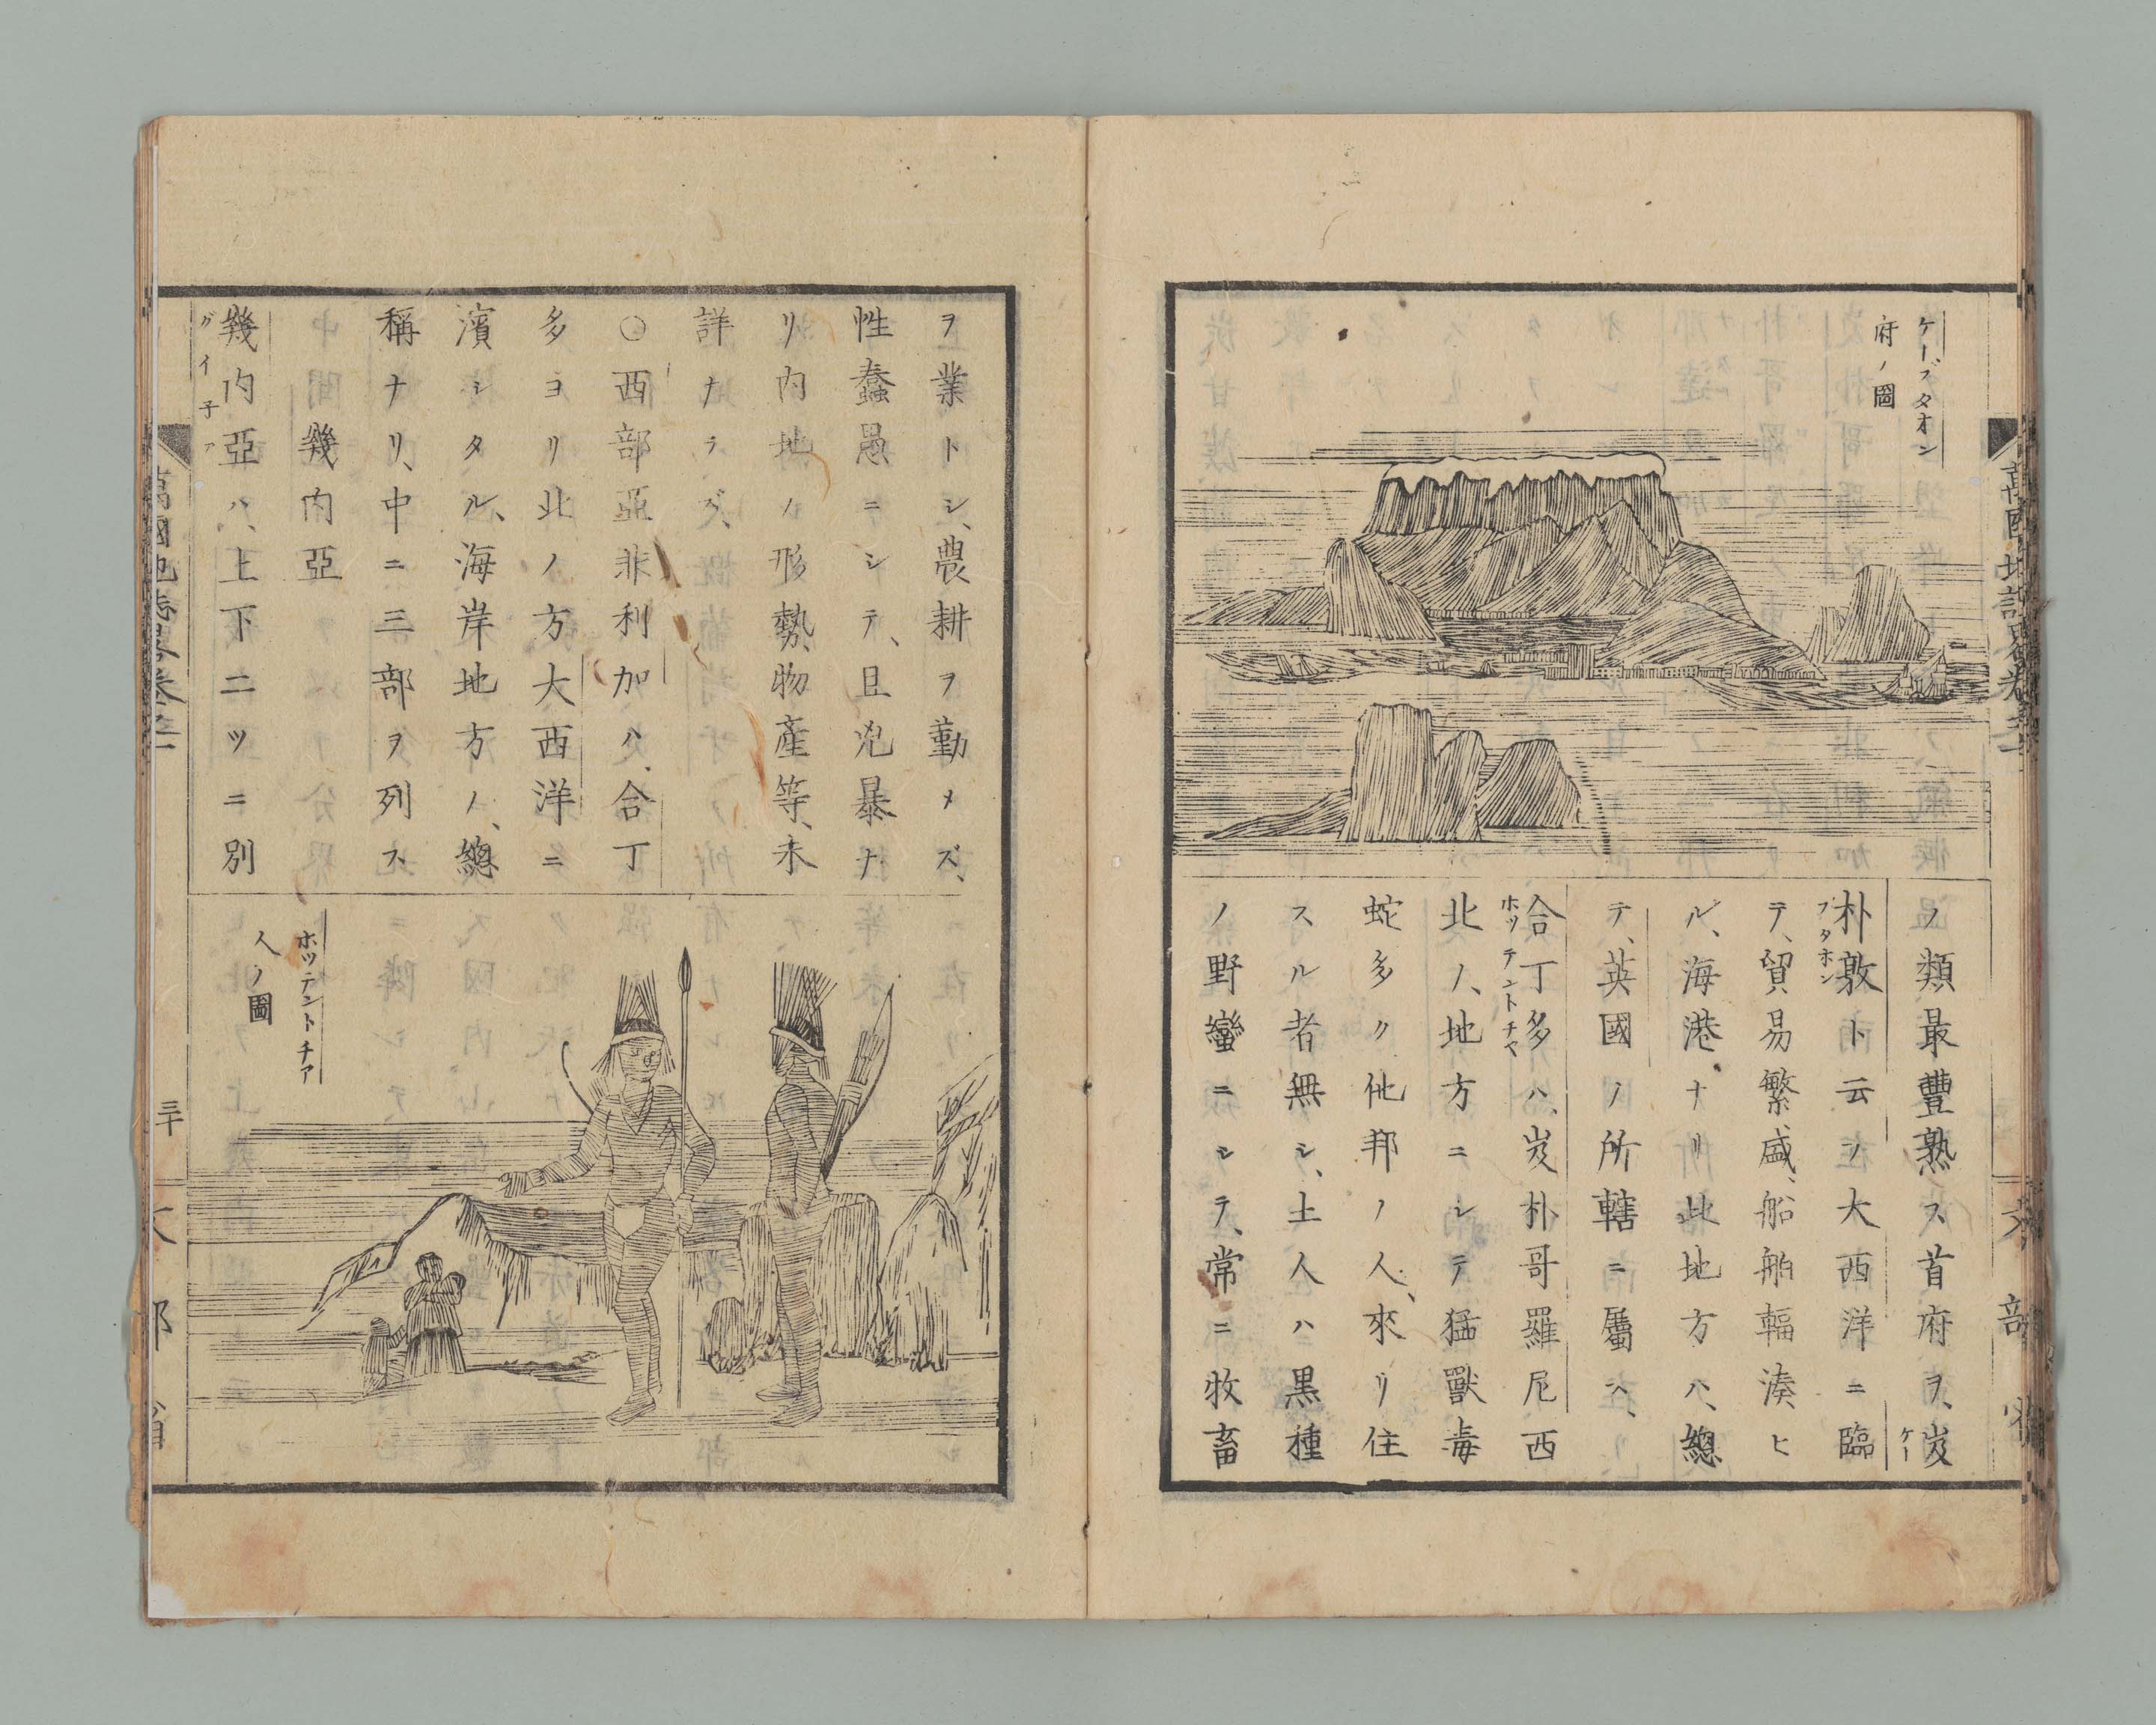 ケーブタオン
府ノ圖
ノ類最豐熟ス首府ヲ、岌
ケー
朴敦ト云ノ大西洋ニ臨
プタホン
テ、貿易繁盛、船舶輻湊ヒ
ル、海港ナリ此地方ハ、總
テ、英國ノ所轄ニ屬ス、
合丁多ハ、岌朴哥羅尼西
ホツテントチヤ
北ノ、地方ニシテ猛獸毒
蛇多ク他邦ノ人、來リ住
スル者無シ、土人ハ黒種
ノ野蠻ニシテ、常ニ牧畜
萬國地誌畧卷之二
文部省
ヲ業トシ、農耕ヲ勤メズ、
性蠢愚ニシテ、且兇暴ナ
リ内地ノ形勢、物産等、未
詳ナラズ、
○西部亞非利加ハ、合丁
多ヨリ北ノ方大西洋ニ
濱シタル、海岸地方ノ、總
稱ナリ、中ニ三部ヲ列ス
幾内亞
幾内亞ハ、上下二ツニ別
グイ子ア
ホツテントチア
人ノ圖
萬國地誌畧卷之二
三十
文部省